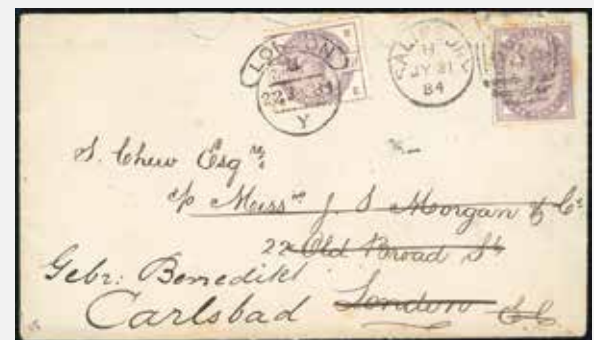 LONDON
Y
JY 31
84
S. Chew Esq re
c/o Messrs J S Morgan & Co
22 Old Broad St
Gebr: Benedikt
Carlsbad London E.C.